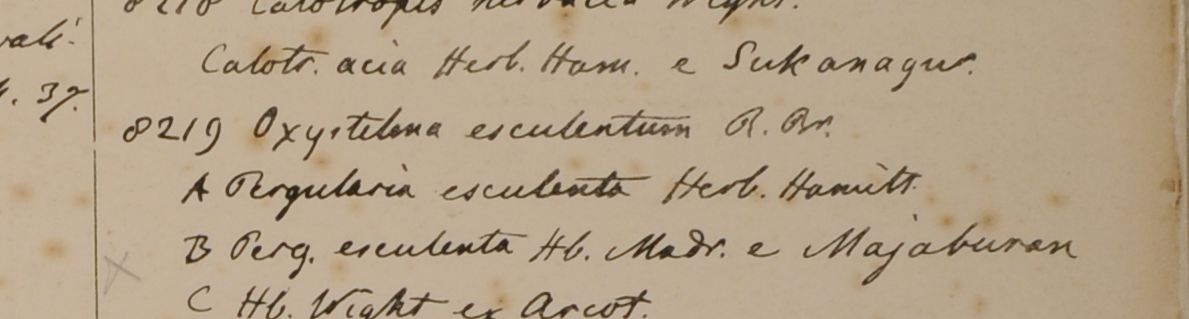 8218 Calotropis herbacea Wight.
vali.
Calotr. acia Herb. Ham. e Sukanagur.
. 37.
8219 Oxystelma esculentum R. Br.
A Pergularia esculenta Herb. Hamilt.
B Perg. esculenta Hb. Madr. e Majaburan
C Hb. Wight ex Arcot.